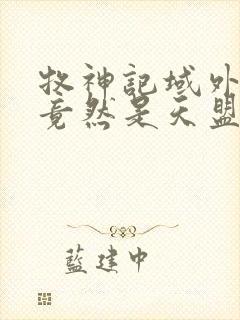 牧神記域外
竟然是天盟
藍建中